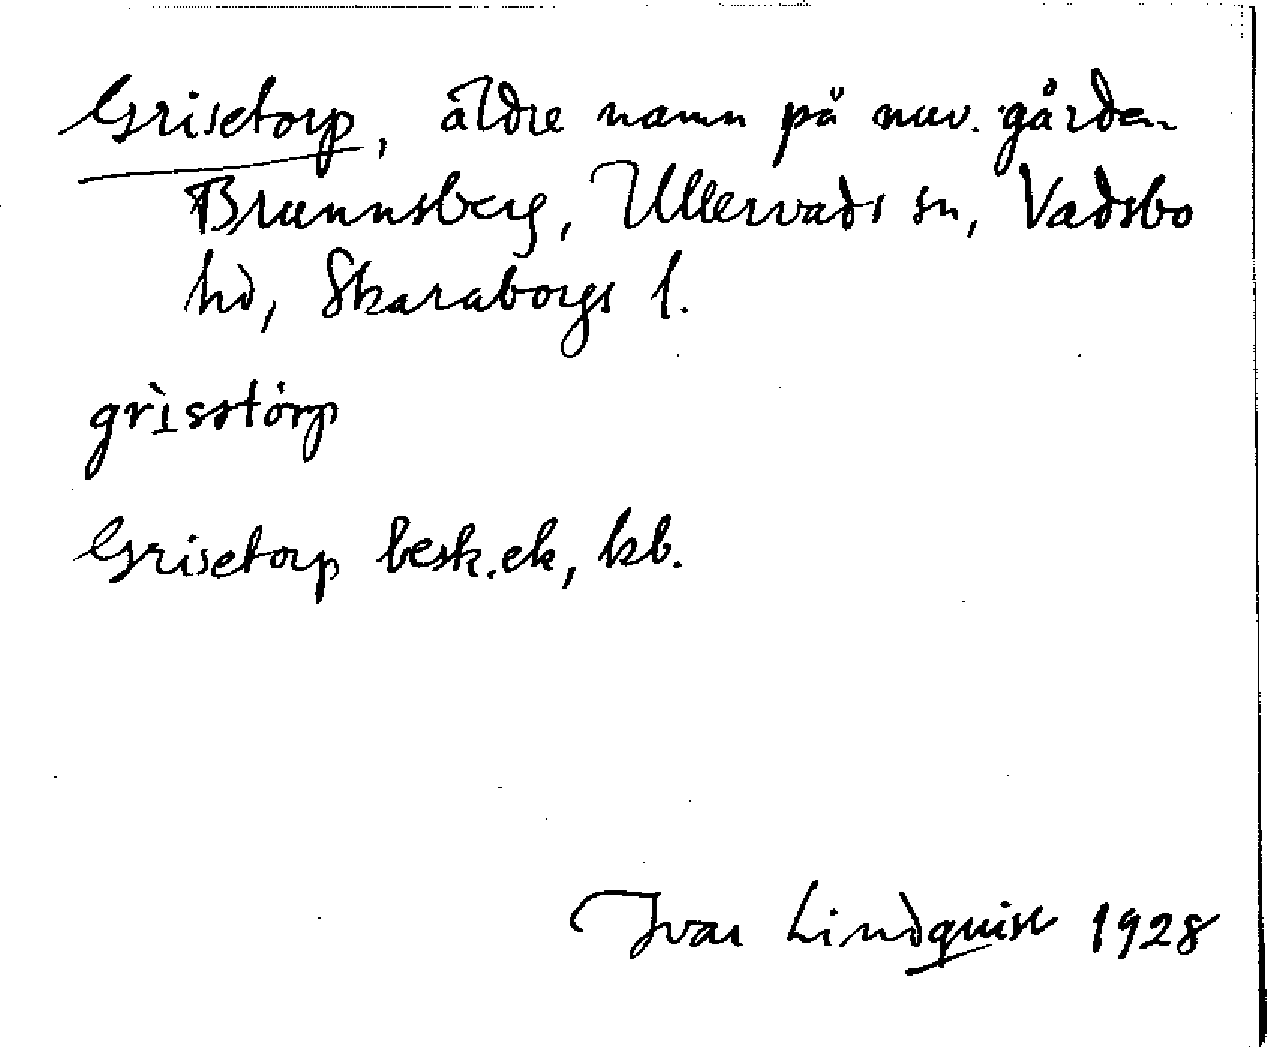 Grisetorp, äldre namn på nuv. gården
Brunnsberg, Ullervads sn, Vadsbo
hd, Skaraborgs l.
grìsstórp
Grisetorp besk.ek, kb.
Ivar Lindquist 1928